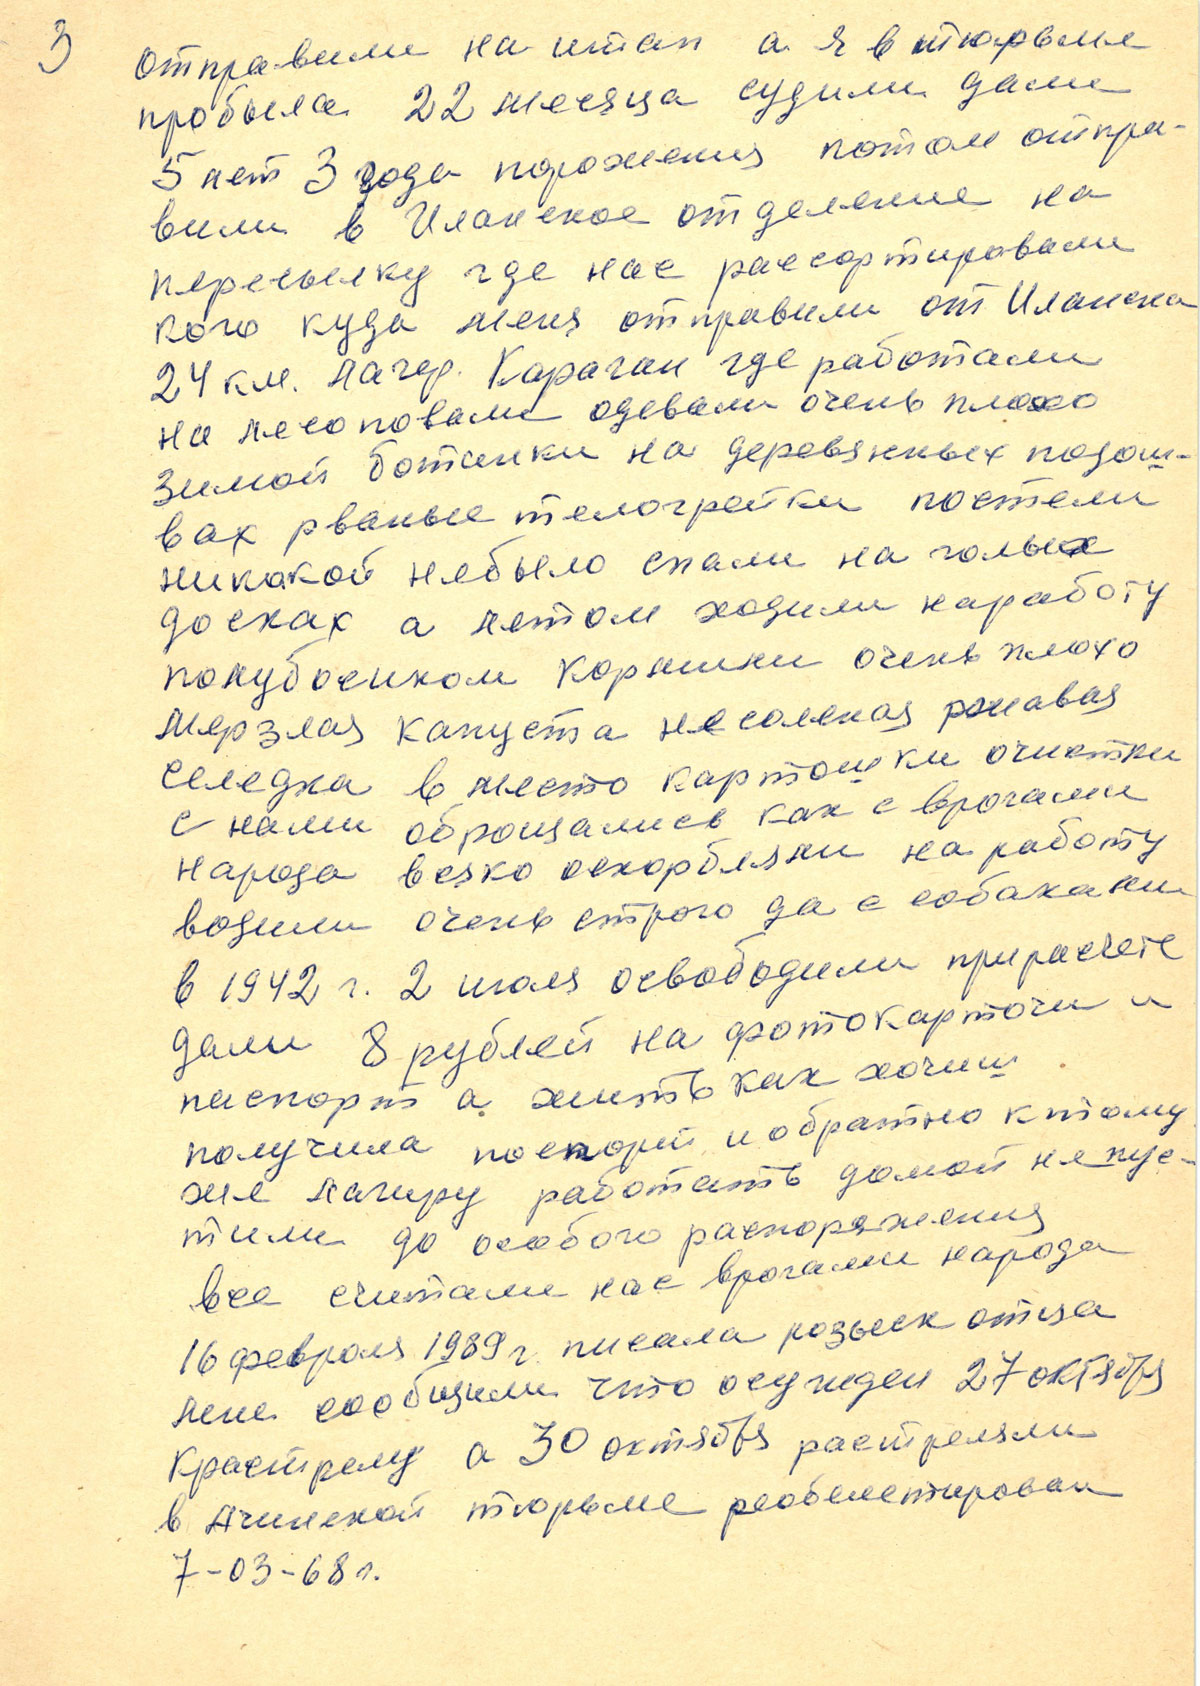 3
отправили на итап а я в тюрьме
пробыла 22 месяца судили дали
5 лет 3 года порожения потом отпра-
вили в Иланское отделение на
пересылку где нас рассортировали
кого куда меня отправили от Иланска
24 км. лагер. Караган где работали
на лесоповали одевали очень плохо
зимой ботинки на деревянных подош-
вах рваные телогрейки постели
никакой небыло спали на голых
досках а летом ходили наработу
полубосиком кормили очень плохо
мерзлая капуста несоленая ржавая
селедка в место картошки очистки
с нами обращались как с врогами
народа всяко оскорбляли на работу
водили очень строго да с собаками
в 1942 г. 2 июля освободили прирасчете
дали 8 рублей на фотокарточи и
паспорт а жить как хочиш
получила поспорт и обратно к тому
же лагиру работать домой не пус-
тили до особого распоряжения
все считали нас врогами народа
16 февраля 1989 г. писала розыск отца
мне сообщили что осужден 27 октября
красстрелу а 30 октября расстреляли
в Ачинской тюрьме реобелетирован
7-03-68 г.